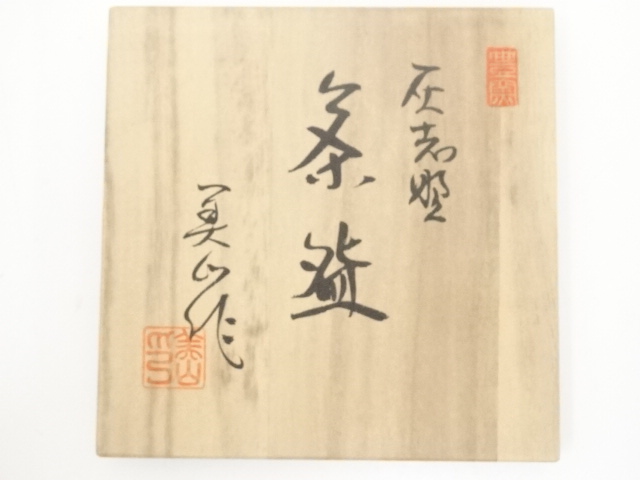 灰志野
茶盌
美山作
美山